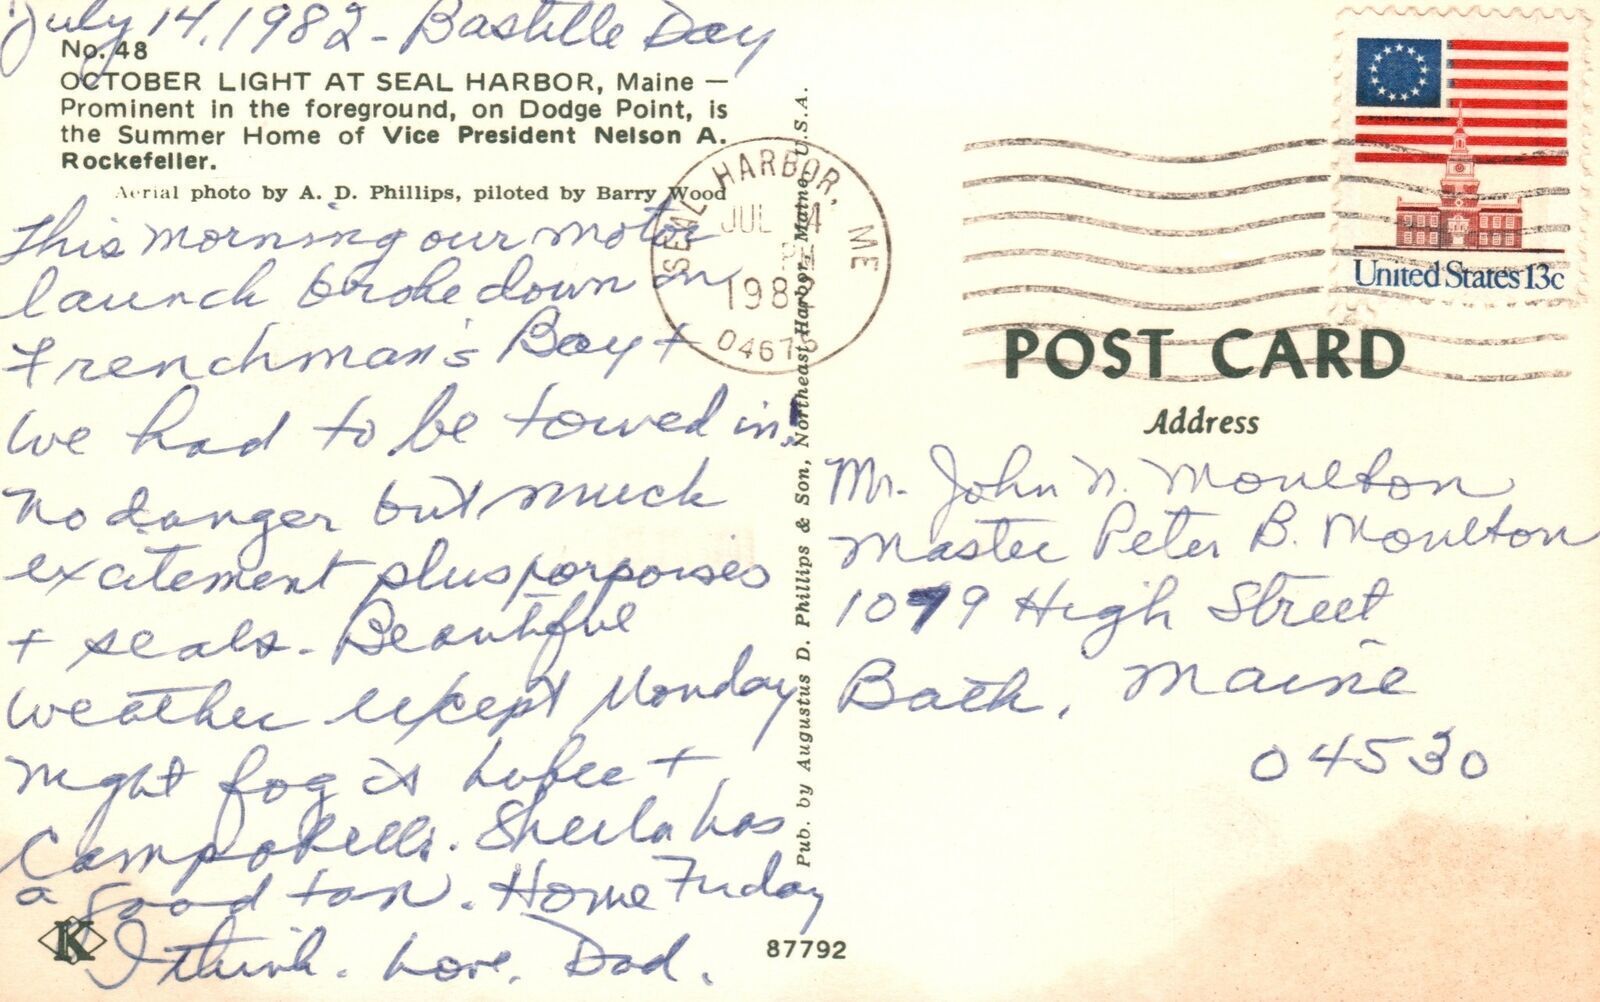 July 14, 1982 - Bastille Day
No. 48
OCTOBER LIGHT AT SEAL HARBOR, Maine —
Prominent in the foreground, on Dodge Point, is
the Summer Home of Vice President Nelson A.
Rockefeller.
Aerial photo by A. D. Phillips, piloted by Barry Wood
This morning our motor
launch broke down on
Frenchman's Bay +
we had to be towed in!
No danger but much
excitement plus porpoises
+ seals. Beautiful
weather except Monday
night fog at Lubec +
Campobello. Sheila has
a good tan. Home Friday
I think. Love, Dad.
K
87792
Pub. by Augustus D. Phillips & Son, Northeast Harbor, Maine, U.S.A.
SEAL HARBOR, ME
JUL 14
1982
04675
United States 13c
POST CARD
Address
Mr. John N. Moulton
Master Peter B. Moulton
1079 High Street
Bath, Maine
04530